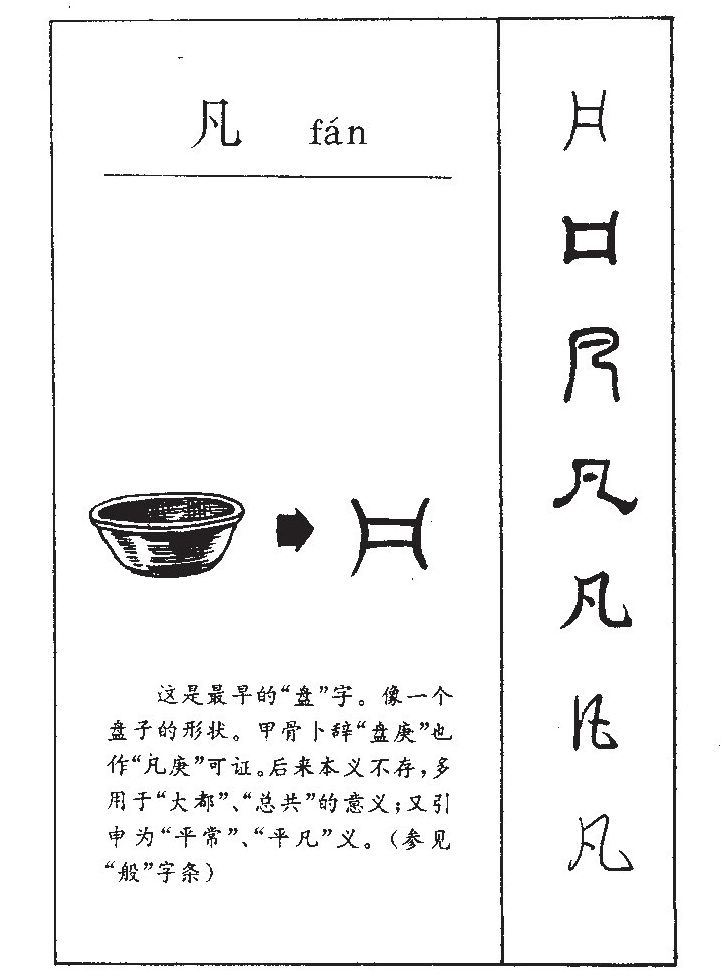 凡 fán
这是最早的“盘”字。像一个
盘子的形状。甲骨卜辞“盘庚”也
作“凡庚”可证。后来本义不存，多
用于“大都”、“总共”的意义；又引
申为“平常”、“平凡”义。（参见
“般”字条）
凡
凡
凡
凡
凡
凡
凡